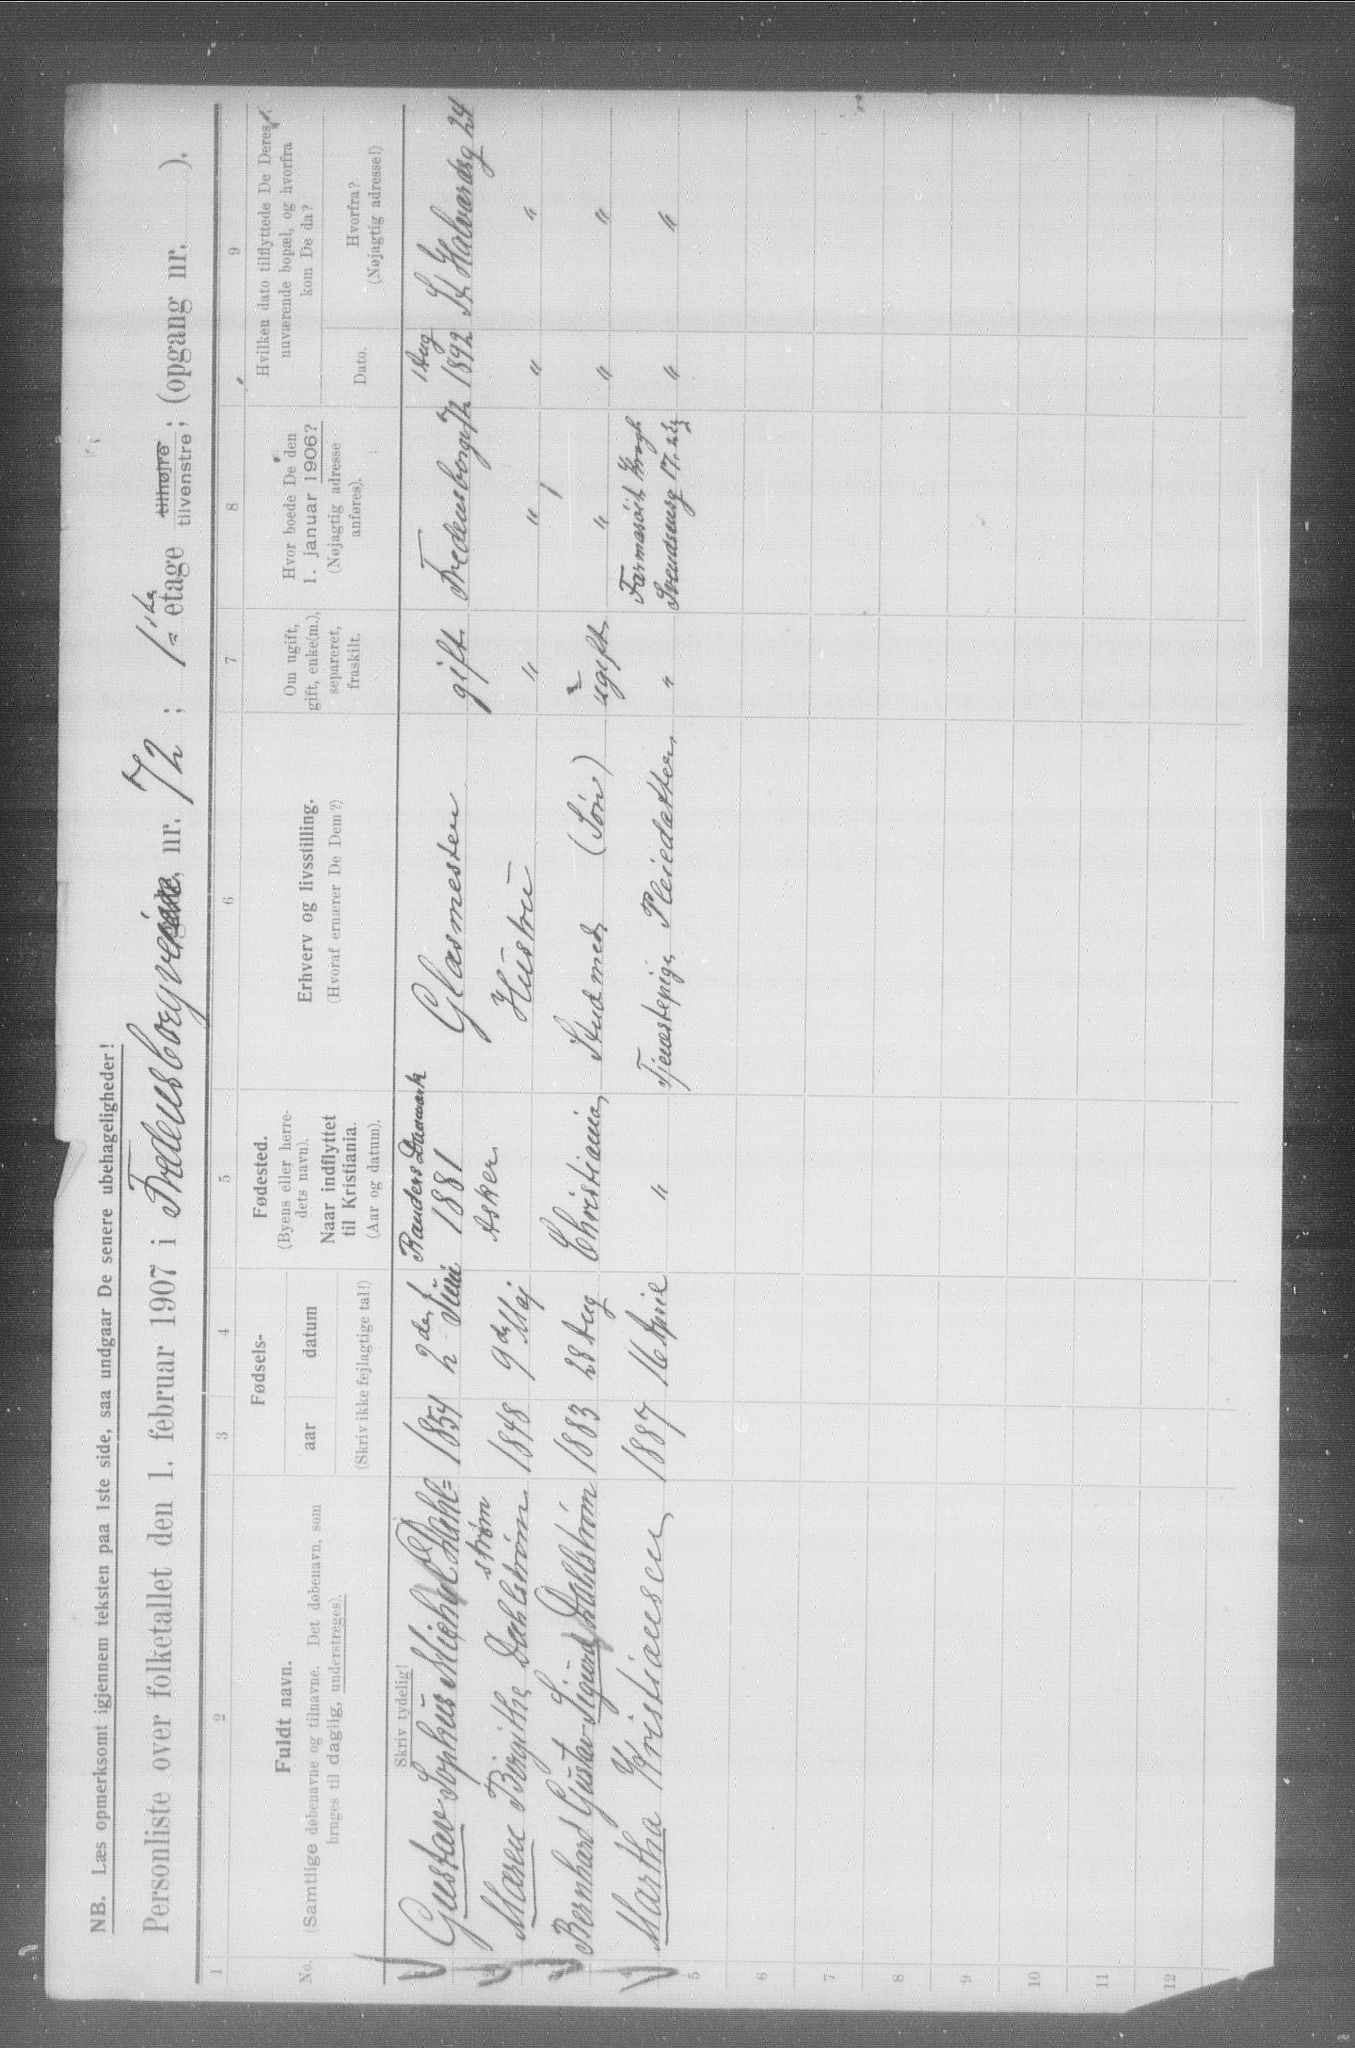 NB. Læs opmerksomt igjennem teksten paa 1ste side, saa undgaar De senere ubehageligheder!
Personliste over folketallet den 1. februar 1907 i Fredensborgveien nr. 72; 1ste etage tilhøjre tilvenstre; (opgang nr. ).
1 2 3 4 5 6 7 8 9
No.
Fuldt navn.
(Samtlige døbenavne og tilnavne. Det døbenavn, som
bruges til daglig, understreges).
Fødsels-
aar datum
(Skriv ikke fejlagtige tal!)
Fødested.
(Byens eller herre-
dets navn).
Naar indflyttet
til Kristiania.
(Aar og datum).
Erhverv og livsstilling.
(Hvoraf ernærer De Dem?)
Om ugift,
gift, enke(m.),
separeret,
fraskilt.
Hvor boede De den
1. januar 1906?
(Nøjagtig adresse
anføres).
Hvilken dato tilflyttede De Deres
nuværende bopæl, og hvorfra
kom De da?
Dato.
Hvorfra?
(Nøjagtig adresse!)
Skriv tydelig!
1 Gustav Sophus Michael Dahl= 1854 2 Juni Randers Danmark 1881 Glasmester gift Fredensborgv 72 1 Aug 1892 St Halvardsg 24
strøm
2 Maren Birgithe Dahlstrøm 1848 9de Maj Asker Hustru " " " "
3 Bernhard Gustav Sigurd Dahlstrøm 1883 28 Aug Christiania Stud med (Søn) ugift " " "
4 Martha Kristiansen 1887 16 April " Tjenestepige, Pleiedatter, " Svendsensg 17. " "
5
6
7
8
9
10
11
12